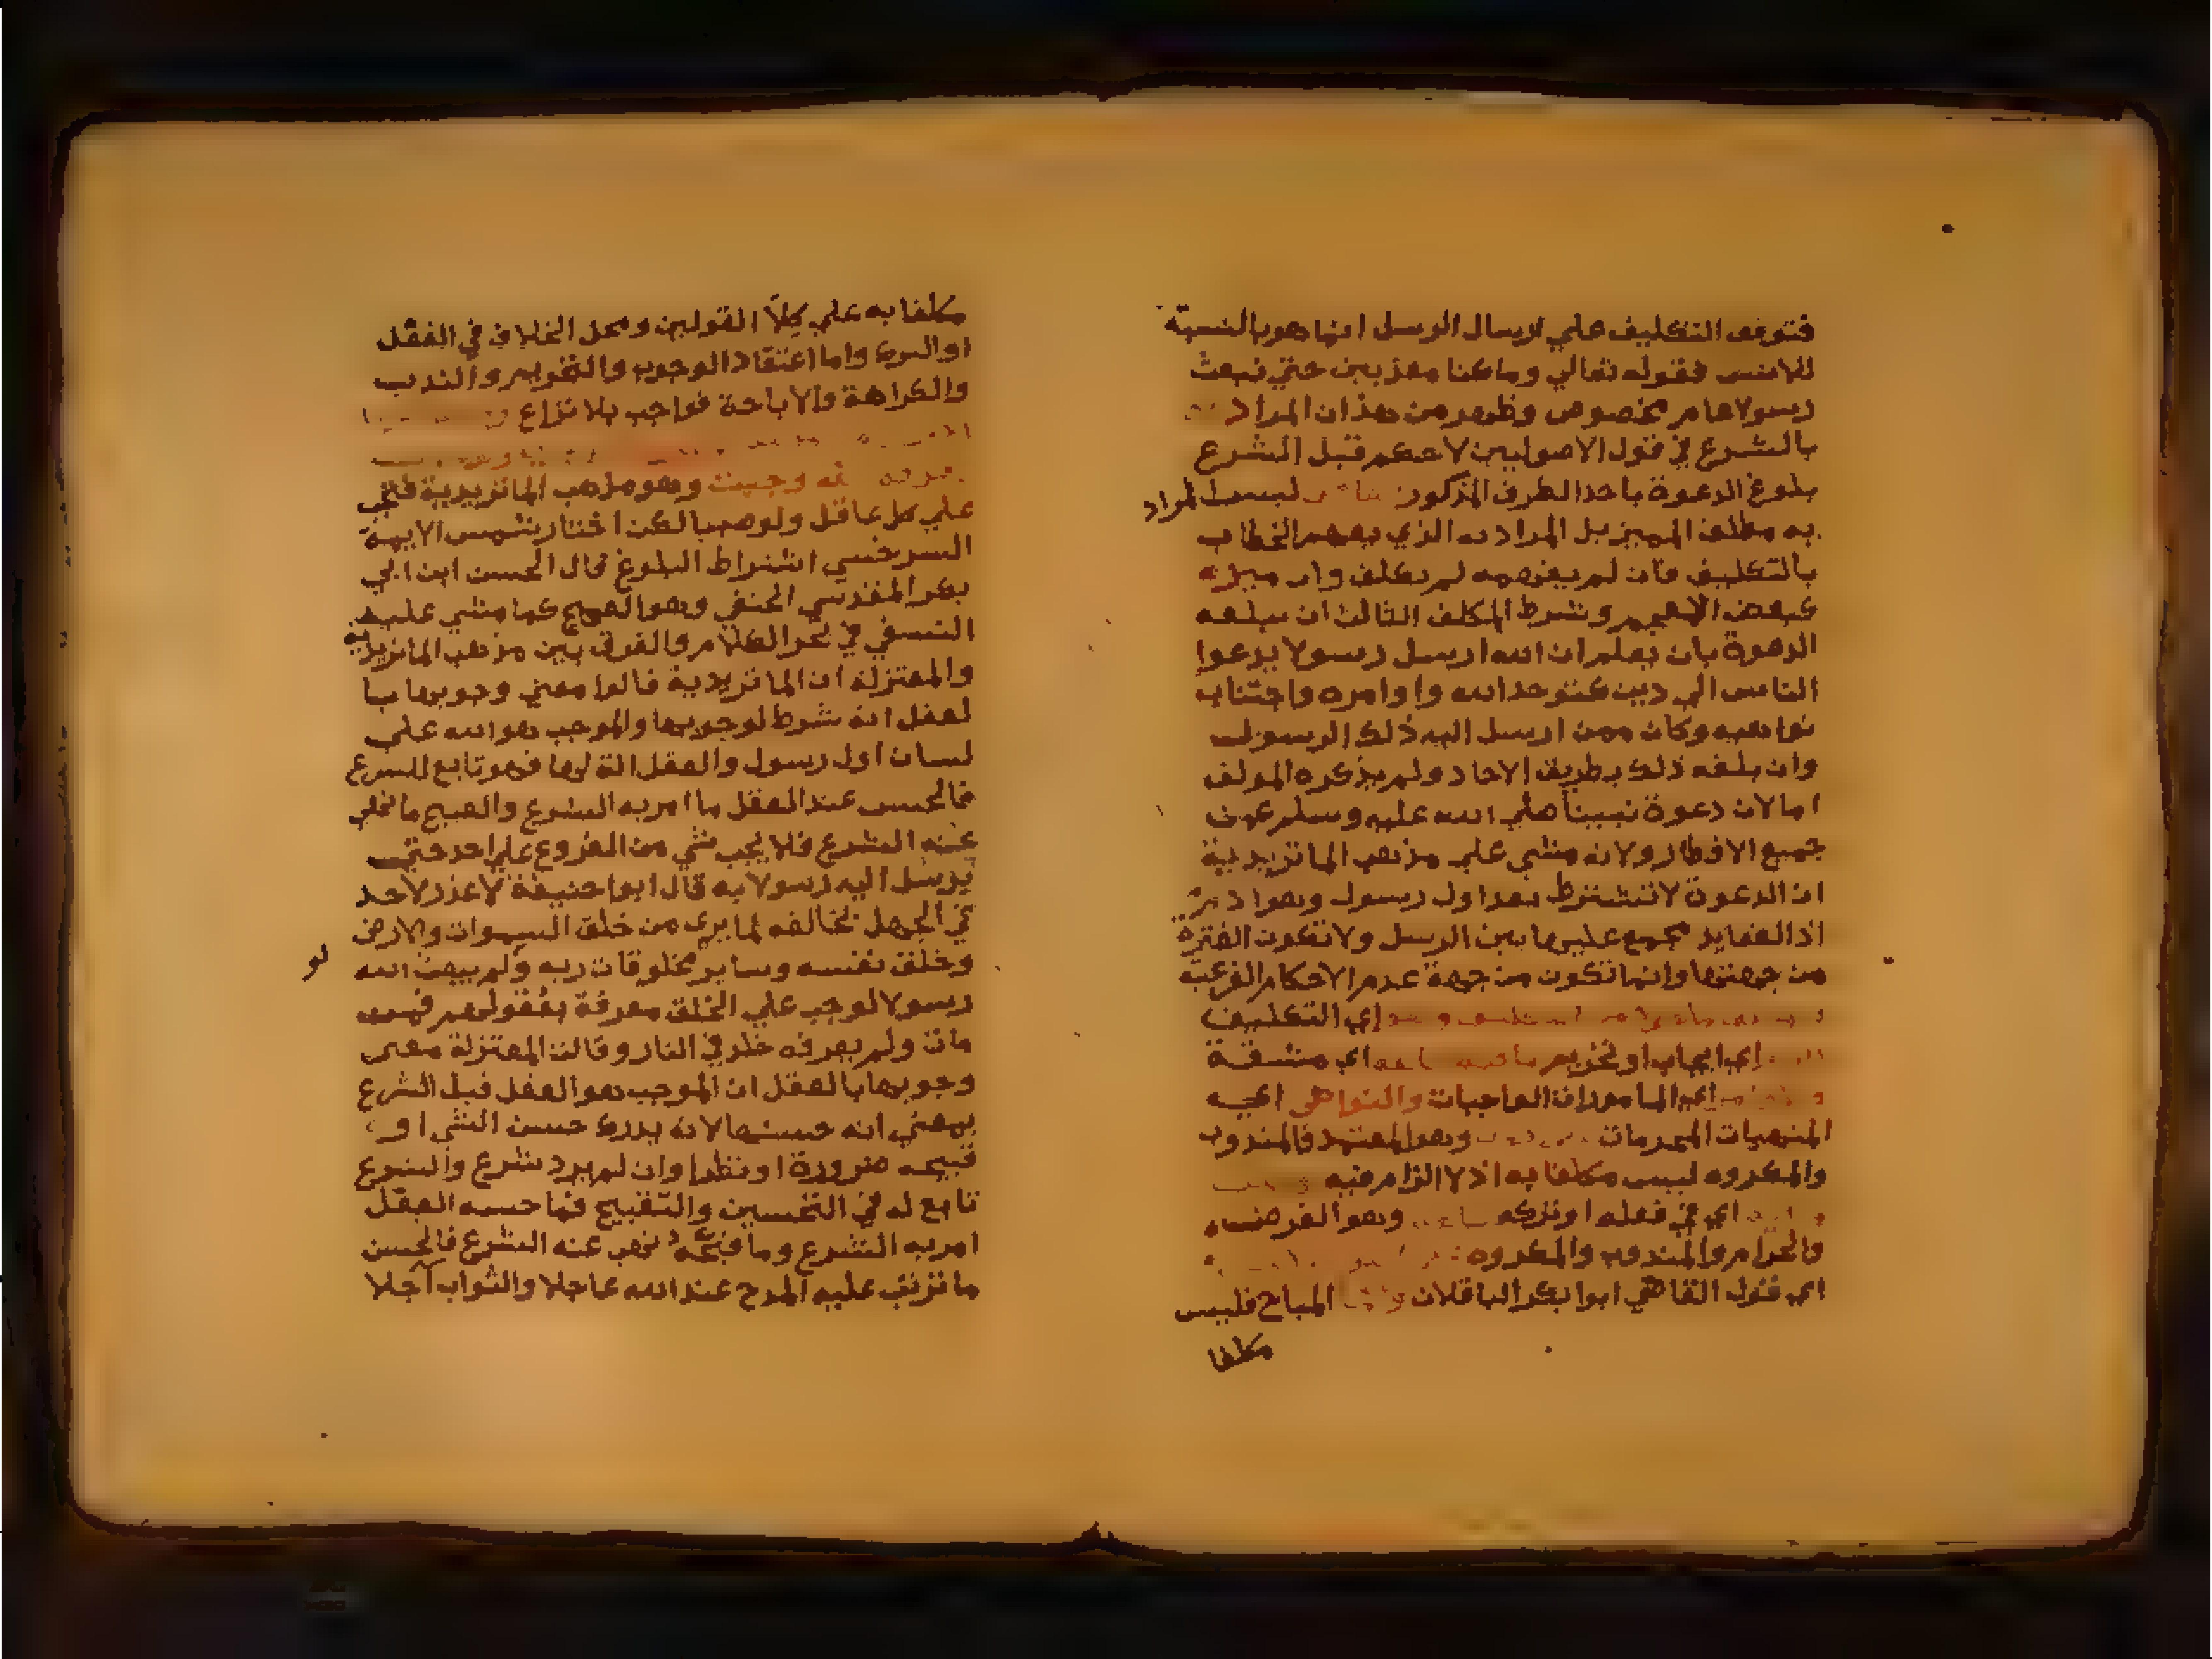 فتوقف التكليف علي ارسال الرسل انما هو بالنسبة
للانس فقوله تعالي وما كنا معذبين حتي نبعث
رسولا عام مخصوص وظهر من هذا ان المراد
بالشرع في قول الاصوليين لا حكم قبل الشرع
بلوغ الدعوة باحد الطرق المذكور ليس المراد
به مطلق المميز بل المراد به الذي يفهم الخطاب
بالتكليف فان لم يفهمه لم يكلف وان ميزه
كبعض الاعجم وشرط المكلف الثالث ان يبلغه
الدعوة بان يعلم ان الله ارسل رسولا يدعوا
الناس الي دين كتوحد الله واوامره واجتناب
نواهيه وكان ممن ارسل اليه ذلك الرسول
وان بلغه ذلك بطريق الاحاد ولم يذكره المولف
اما لان دعوة نبينا صلي الله عليه وسلم عمت
جميع الاقطار ولانه مشي علي مذهب الماتريدية
ان الدعوة لا تشترط بعد اول رسول وهو ادم
اذ العقايد مجمع عليها بين الرسل ولا تكون الفترة
من جهتها وانما تكون من جهة عدم الاحكام الفرعية
اي التكليف
اي ايجاب او تحريم ما فيه اي مشقة
اي المامورات الواجبات والنواهي اي
المنهيات المحرمات وهو المعتمد فالمندوب
والمكروه ليس مكلفا به اذ لا الزام فيه
اي في فعله او تركه وهو الفرض
والحرام والمندوب والمكروه
اي قول القاضي ابوا بكر الباقلان المباح فليس
مكلفا
مكلفا به علي كلا القولين ومحل الخلاف في الفعل
او الترك واما اعتقاد الوجوب والتحريم والندب
والكراهة والاباحة فواجب بلا نزاع
وجبت وهو مذهب الماتريدية فتجب
علي كل عاقل ولو صبيا لكن اختار شمس الايمة
السرخسي اشتراط البلوغ قال الحسن ابن ابي
بكر المقدسي الحنفي وهو الصحيح كما مشي عليه
النسفي في بحر الكلام والفرق بين مذهب الماتريدية
والمعتزلة ان الماتريدية قالوا معني وجوبها با
لعقل انه شرط لوجوبها والموجب هو الله علي
لسان اول رسول والعقل الة لها فهو تابع للشرع
فالحسن عند العقل ما امر به الشرع والقبيح ما نهي
عنه الشرع فلا يجب شي من الفروع علي احد حتي
يرسل اليه رسولا به قال ابوا حنيفة لا عذر لاحد
في الجهل بخالقه لما يري من خلق السموات والارض
وخلق نفسه وساير مخلوقات ربه ولم يبعث الله
لو
رسولا لوجب علي الخلق معرفة بعقولهم فمن
مات ولم يعرفه خلد في النار وقالت المعتزلة معني
وجوبها بالعقل ان الموجب هو العقل قبل الشرع
بمعني انه حسنها لانه يدرك حسن الشي او
قبحه ضرورة او نظرا وان لم يرد شرع والشرع
تابع له في التحسين والتقبيح فما حسنه العقل
امر به الشرع وما قبحه نهي عنه الشرع فالحسن
ما ترتب عليه المدح عند الله عاجلا والثواب آجلا